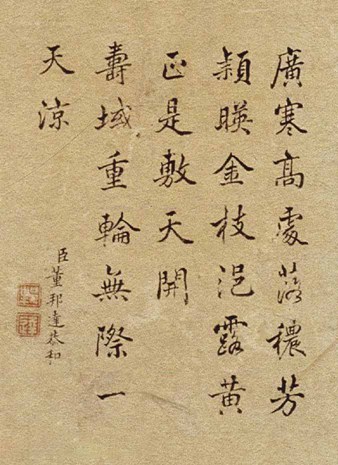 廣寒高處落穠芳
頴暎金枝浥露黃
正是敷天開
壽域重輪無際一
天涼
臣董邦達恭和